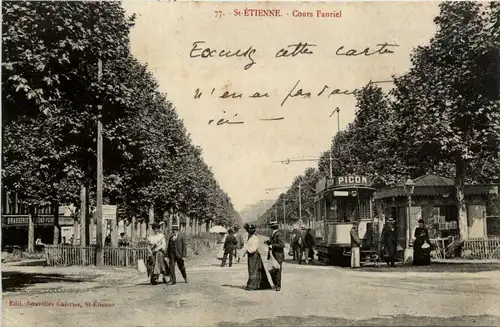 77. - St-ÉTIENNE. - Cours Fauriel
Excusez cette carte
n'en ai pas d'autre
ici —
PICON
BRASSERIE
Edit. Nouvelles Galeries, St-Etienne